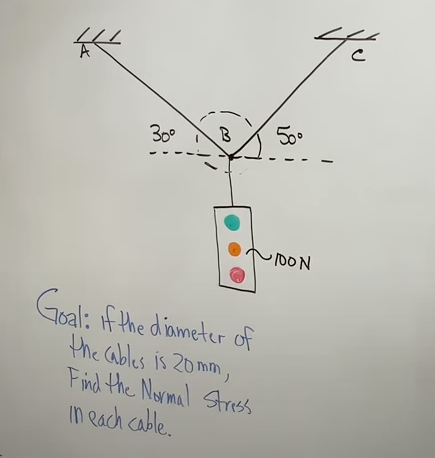 A
C
30°
B
50°
100N
Goal: if the diameter of
the cables is 20mm,
Find the Normal Stress
in each cable.